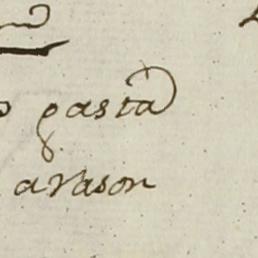 gasta
arason